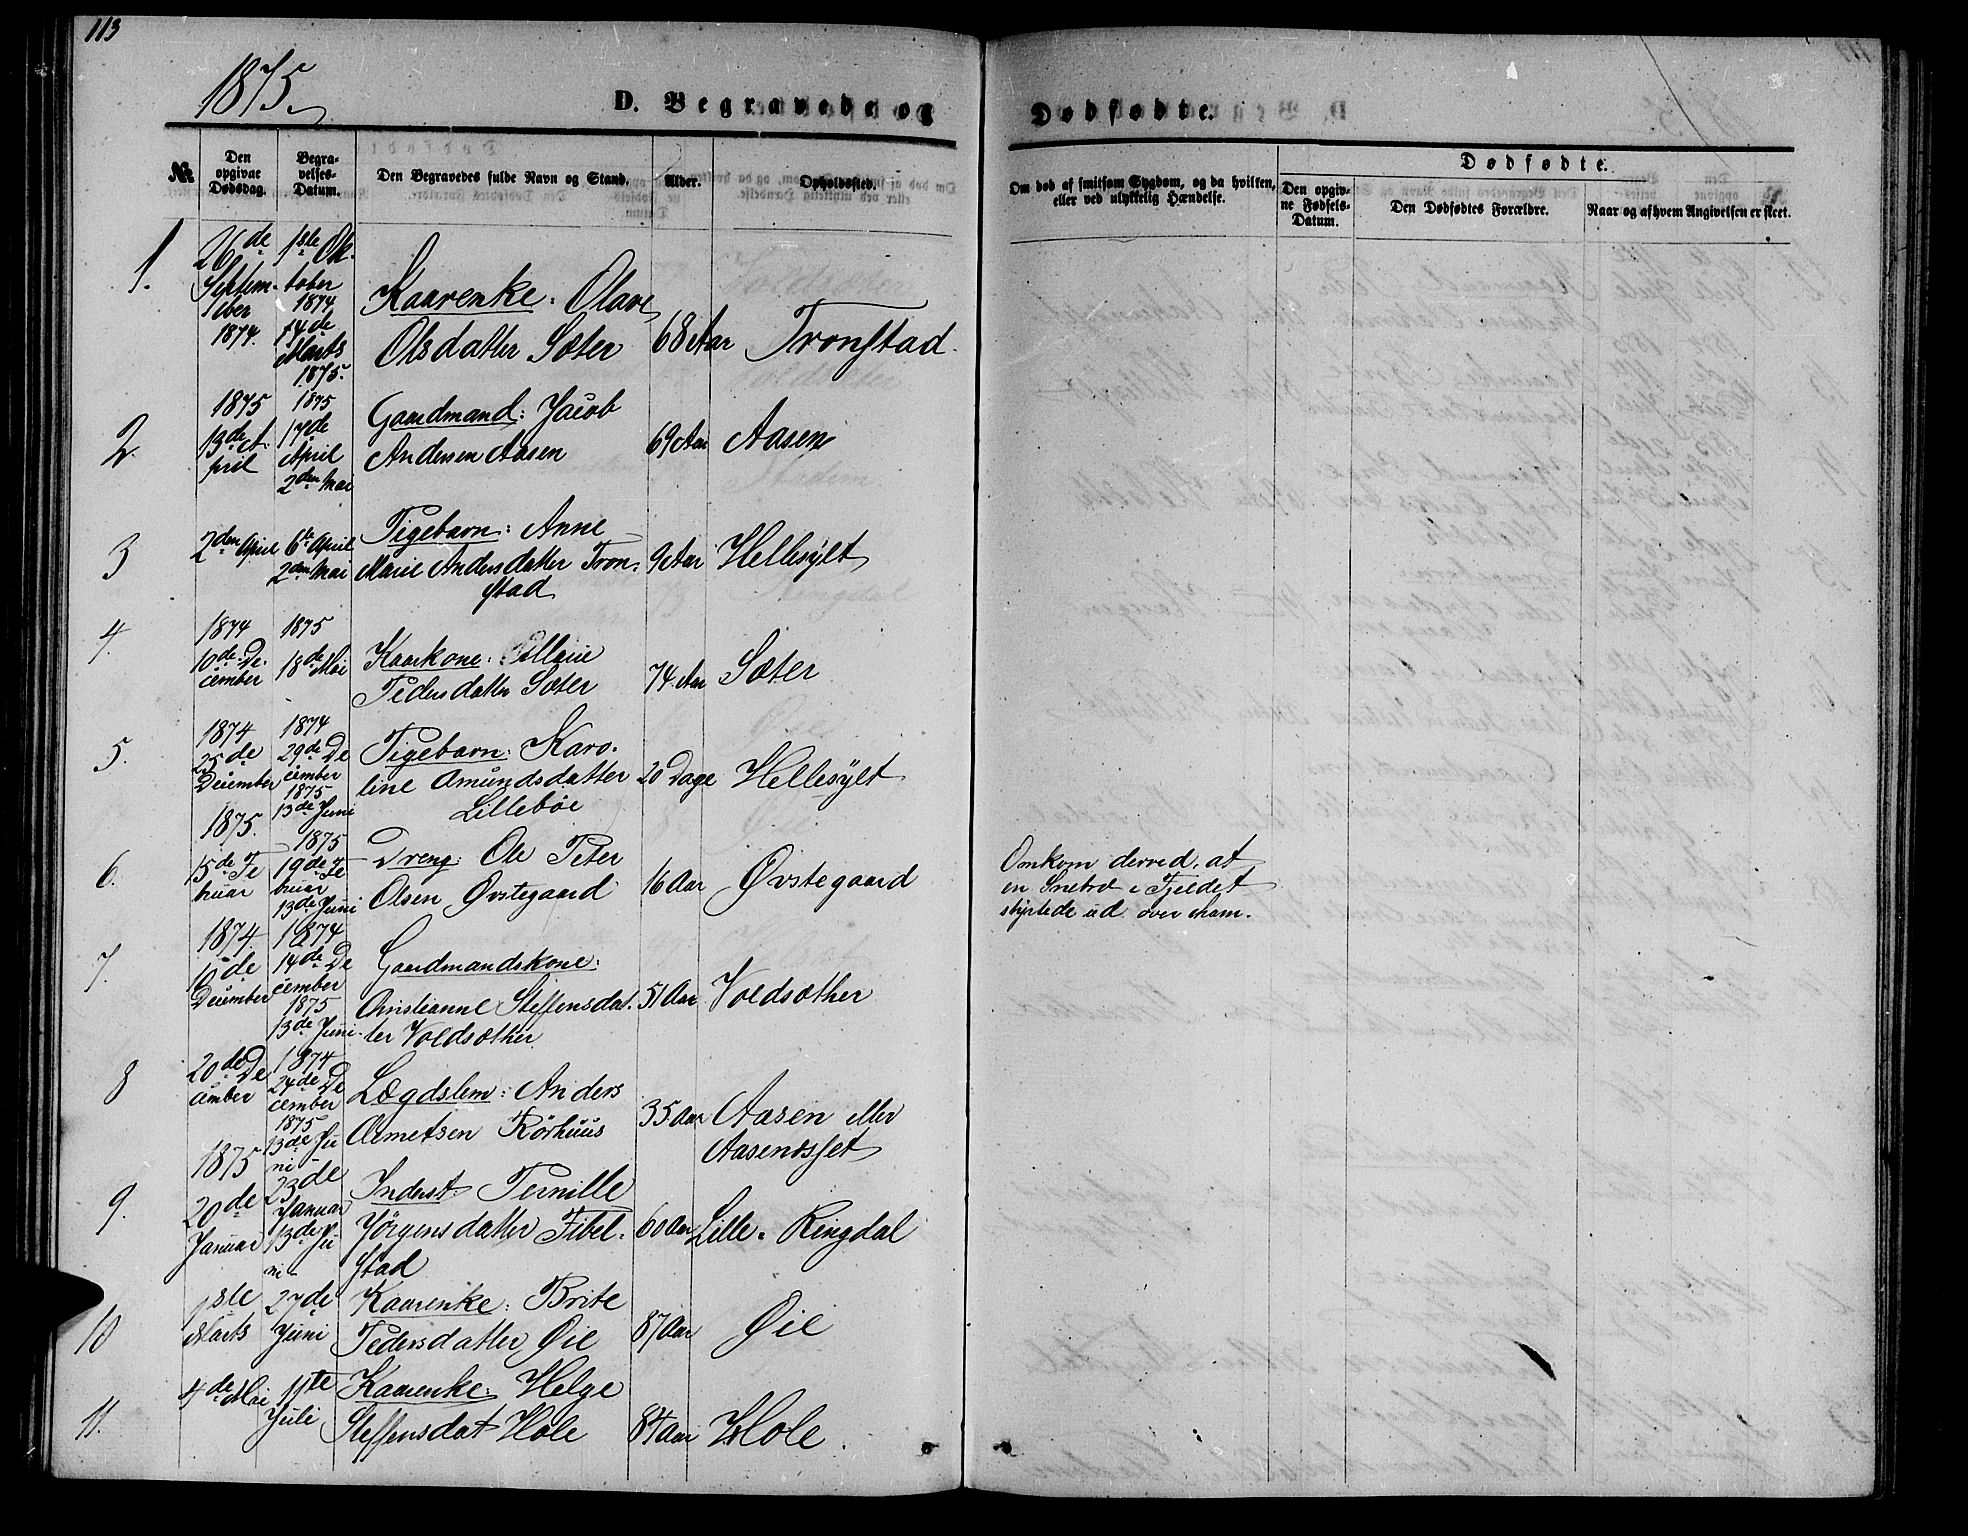 113
1875.
D. Begravede og Dødfødte.
No.
Den opgivne Dødsdag.
Begravelses-Datum.
Den Begravedes fulde Navn og Stand.
Alder.
Opholdssted.
Om død af smitsom Sygdom, og da hvilken,
eller ved ulykkelig Hændelse.
Dødfødte.
Den opgiv-
ne Fødsels-
Datum.
Den Dødfødtes Forældre.
Naar og af hvem Angivelsen er skeet.
1.
26de Septem-
ber
1874.
1ste Ok-
tober
1874
14de
Marts
1875.
Kaarenke: Olave
Olsdatter Sæter
68 Aar
Tronstad.
2.
1875
13de A-
pril
1875
17de
April
2den Mai
Gaardmand: Jacob
Andersen Aasen
69 Aar
Aasen
3
2den April
6te April
2den Mai
Pigebarn: Anne
Marie Andersdatter Tron-
stad
9 Aar
Hellesylt
4.
1874
10de De-
cember
1875
18de Mai
Kaarkone: Marie
Pedersdatter Sæter
74 Aar
Sæter
5.
1874
25de
December
1874
29de De
cember
1875
13de Juni
Pigebarn: Karo-
line Amundsdatter
Lillebøe
20 Dage
Hellesylt
6.
1875.
15de Fe
bruar
1875
19de Fe
bruar
13de Juni
Dreng: Ole Peter
Olsen Øvstegaard
16 Aar
Øvstegaard
Omkom derved, at
en Snebræ i Fjeldet
styrtede ud over ham.
7.
1874.
10de
December
1874
14de De
cember
1875
13de Juni
Gaardmandskone:
Christianne Steffensdat-
ter Voldsæther
51 Aar
Voldsæther
8
20de De
cember
1874
24de De
cember
1875
13de Ju
ni
Lægdslem: Anders
Rørhuus
35 Aar
Aasen eller
9.
1875
20de
Januar
23de
Januar
13de Ju
ni
Inderst: Pernille
Jørgensdatter Fibel-
stad
60 Aar
Lille-Ringdal
10
1ste
Marts
27de
Juni
Kaarenke: Brite
Pedersdatter Øie
87 Aar
Øie
11.
4de Mai
11te
Juli
Kaarenke: Helge
Steffensdat Hole
84 Aar
Hole.